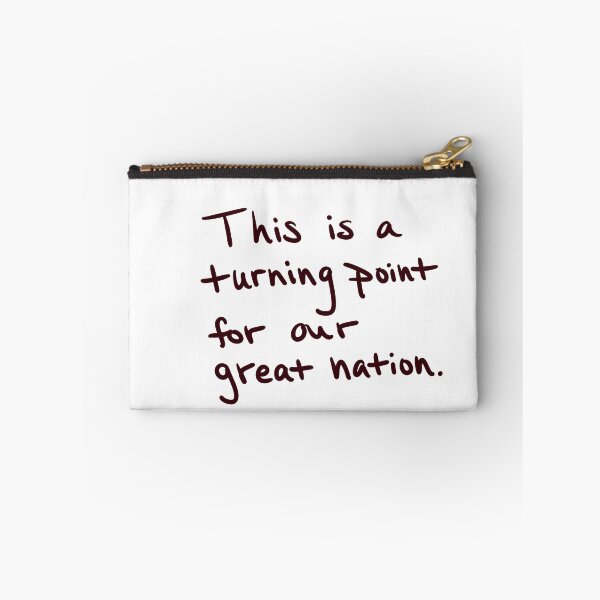 This is a
turning point
for our
great nation.